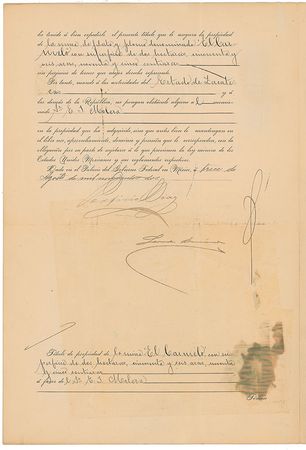 ha tenido á bien expedirle el presente título que le asegura la propiedad
de la mina de plata y plomo denominada "El Car-
melo" con superficie de dos hectaras, cincuenta y
seis aras, noventa y cinco centiaras
sin perjuicio de tercero que mejor derecho represente.
Por tanto, mando á las autoridades del Estado de Zacate-
cas y á
las demás de la República, no pongan obstáculo alguno á l
Sr. E. S. Melora
en la propiedad que ha adquirido, sino que antes bien le mantengan en
el libre uso, aprovechamiento, dominio y posesión que le corresponden, con la
obligación por su parte de sujetarse á lo que previenen la ley minera de los
Estados Unidos Mexicanos y sus reglamentos respectivos.
Dado en el Palacio del Gobierno Federal en México, á trece de
Agosto de mil novecientos dos
Porfirio Diaz
Título de propiedad de la mina "El Carmelo" con su-
perficie de dos hectaras, cincuenta y seis aras, noventa
y cinco centiaras
á favor de l Sr. E. S. Melora